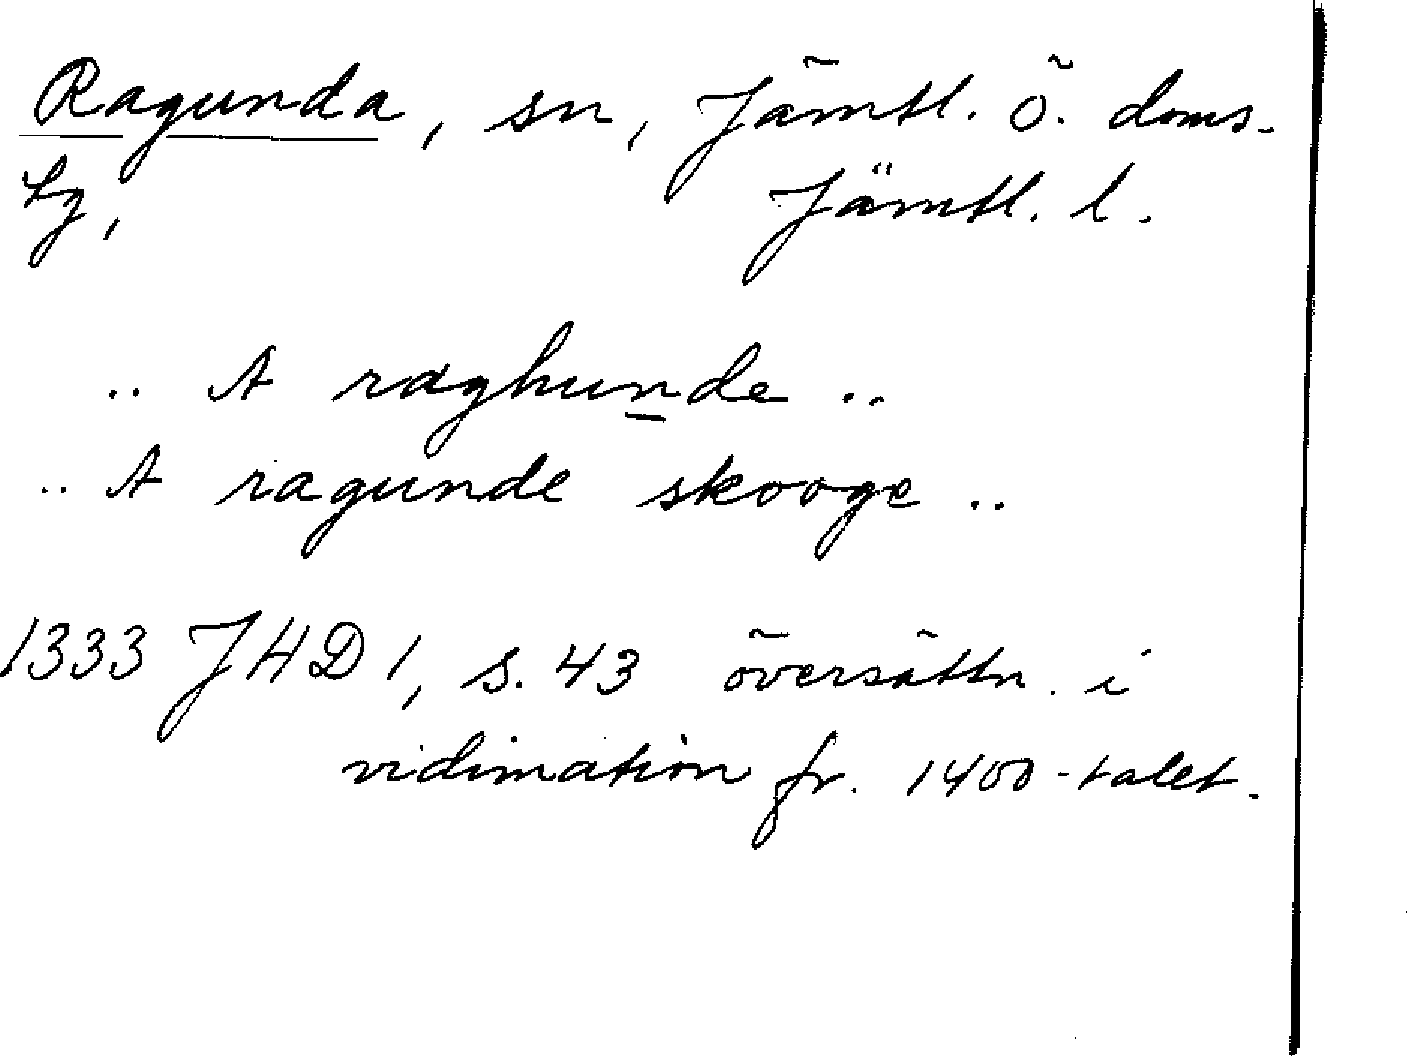 Ragunda, sn, Jämtl. ö. doms-
sg, Jämtl. l.
.. A raghunde ..
.. A ragunde skooge ..
1333 JHD 1, s. 43 översättn. i
vidimation fr. 1400-talet.